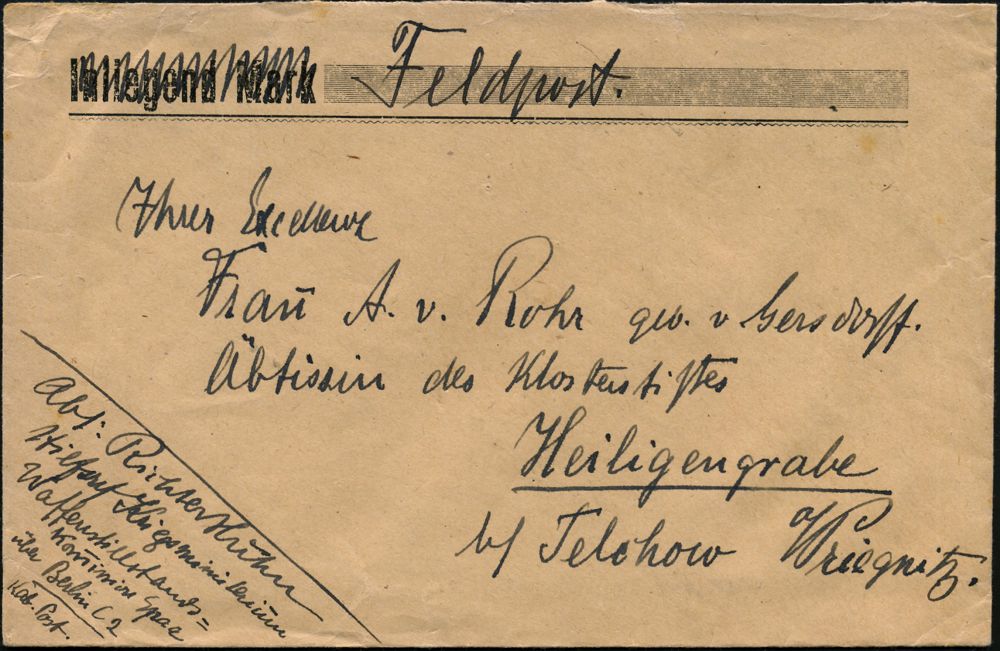 Inliegend Mark
Feldpost.
Ihrer Excellenz
Frau A. v. Rohr geb. v Gersdorff.
Äbtissin des Klosterstiftes
Heiligengrabe
b/ Techow Priegnitz.
Abs: Richter
Kriegsministerium
Waffenstillstands=
Komission Spaa
über Berlin C 2
Kab. Post.